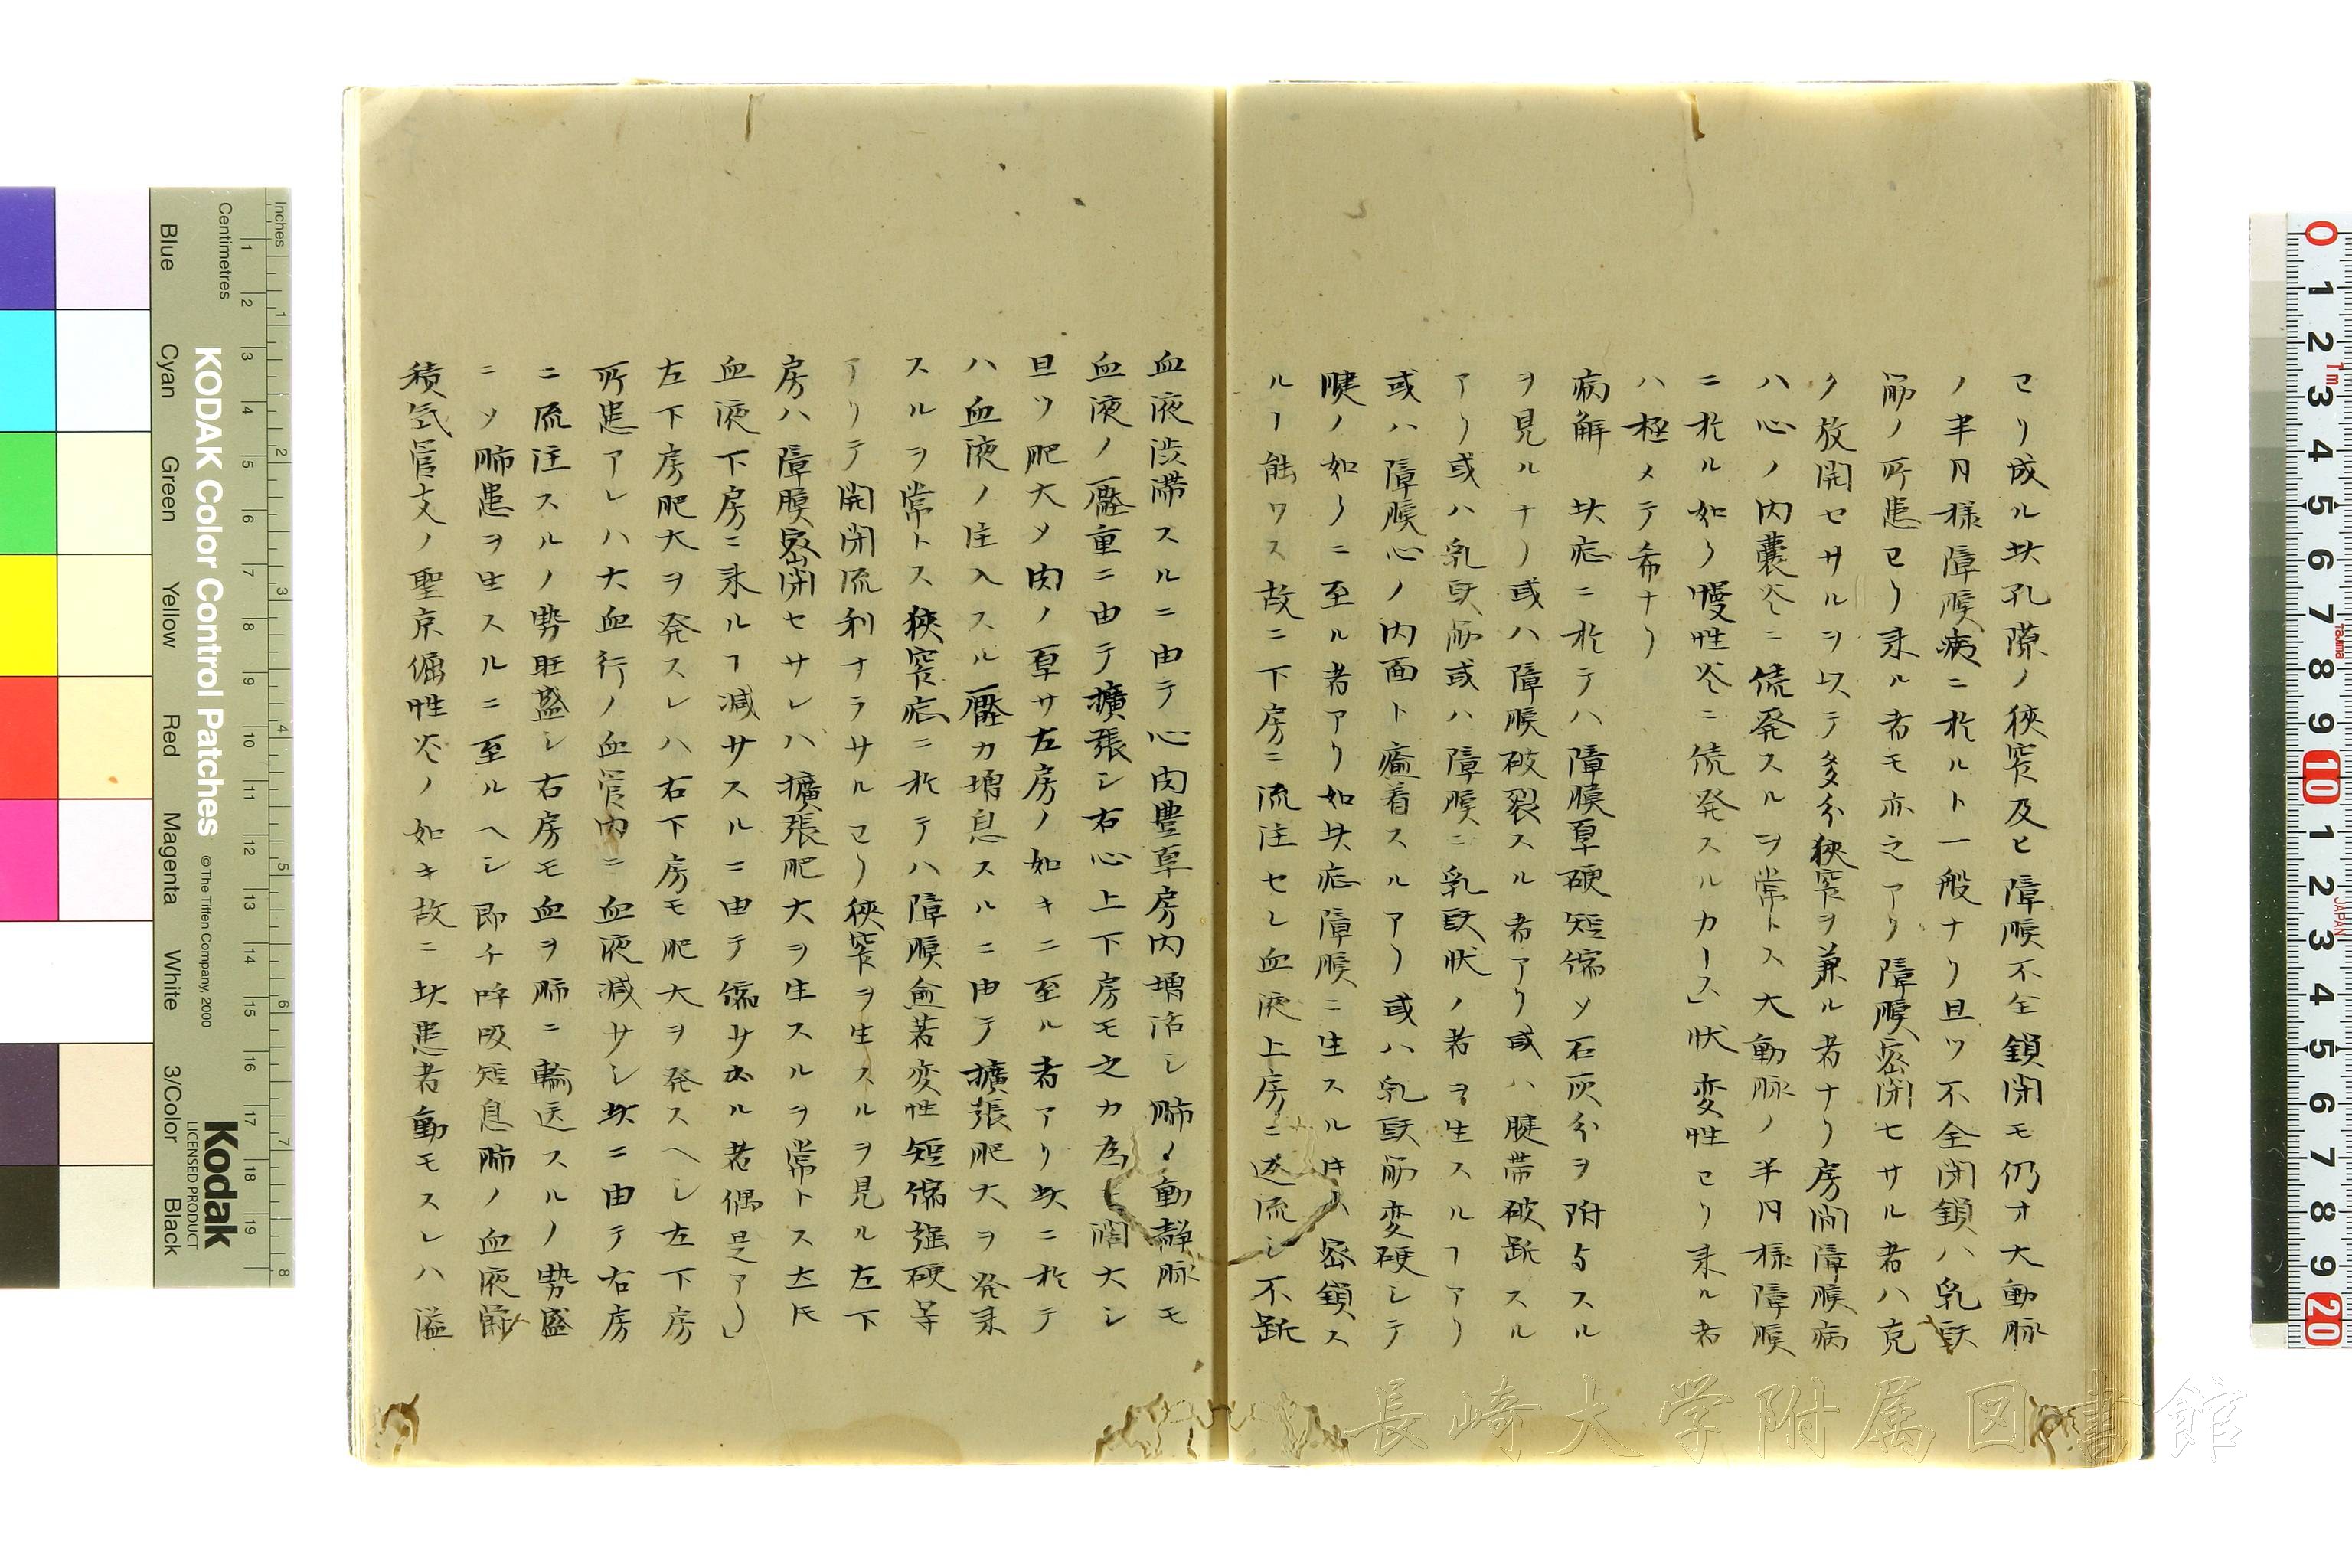 ヨリ成ル此孔隙ノ狹窄及ヒ障膜不全鎖閉モ仍オ大動脉
ノ半月様障膜病ニ於ルト一般ナリ且ツ不全閉鎖ハ乳頭
筋ノ所患ヨリ来ル者モ亦之アリ障膜密閉セサル者ハ克
ク放開セサルヲ以テ多分狹窄ヲ兼ル者ナリ房間障膜病
ハ心ノ内囊炎ニ続発スルヲ常トス大動脉ノ半月様障膜
ニ於ル如ク慢性炎ニ続発スルカース」状変性ヨリ来ル者
ハ極メテ希ナリ
病解 此症ニ於テハ障膜厚硬短縮メ石灰分ヲ附与スル
ヲ見ルナリ或ハ障膜破裂スル者アリ或ハ腱帯破断スル
アリ或ハ乳頭筋或ハ障膜ニ乳頭状ノ者ヲ生スルヿアリ
或ハ障膜心ノ内面ト癒着スルアリ或ハ乳頭筋変硬シテ
腱ノ如クニ至ル者アリ如此症障膜ニ生スル時ハ密鎖ス
ルヿ能ワス故ニ下房ニ流注セシ血液上房ニ逆流シ不断
血液渋滞スルニ由テ心肉豊厚房内増活シ肺ノ動静脉モ
血液ノ壓重ニ由テ擴張シ右心上下房モ之カ為ニ濶大シ
且ツ肥大メ肉ノ厚サ左房ノ如キニ至ル者アリ此ニ於テ
ハ血液ノ注入スル壓力増息スルニ由テ擴張肥大ヲ発来
スルヲ常トス狹窄症ニ於テハ障膜愈着変性短縮強硬等
アリテ開閉流利ナラサルヨリ狹窄ヲ生スルヲ見ル左下
房ハ障膜密閉セサレハ擴張肥大ヲ生スルヲ常トス左氏
血液下房ニ来ルヿ減サスルニ由テ縮サナル者偶是アリ」
左下房肥大ヲ発スレハ右下房モ肥大ヲ発スヘシ左下房
所患アレハ大血行ノ血管内ニ血液減サシ此ニ由テ右房
ニ流注スルノ勢旺盛シ右房モ血ヲ肺ニ輸送スルノ勢盛
ニソ肺患ヲ生スルニ至ルヘシ即チ呼吸短息肺ノ血液
積気管支ノ聖京倔性炎ノ如キ故ニ此患者動モスレハ溢
長崎大学附属図書館
KODAK Color Control Patches
© The Tiffen Company, 2000
Kodak
LICENSED PRODUCT
Inches
Centimetres
Blue Cyan Green Yellow Red Magenta White 3/Color Black